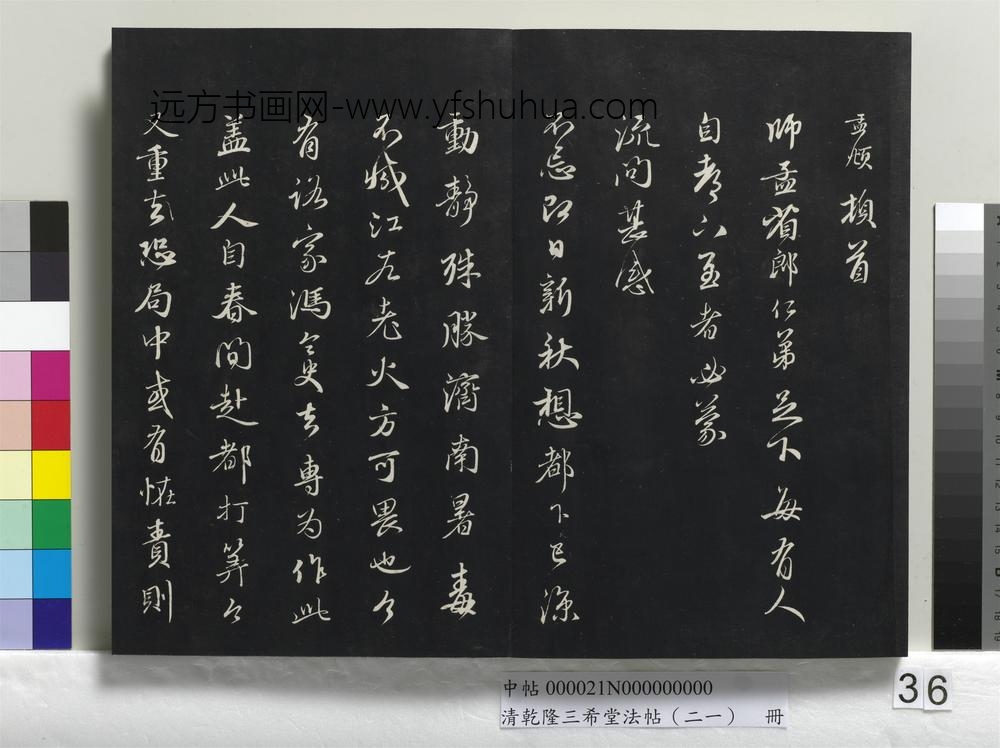 远方书画网-www.yfshuhua.com
孟頫頓首
師孟省郎仁弟足下每有人
自都下至者必蒙
流问甚感
不忘即日新秋想都下已凉
動静殊勝濟南暑毒
不减江左老火方可畏也今
有諮家馮令史去専为作此
盖此人自春间赴都打筭今
又重去恐局中或有怪責則
中帖 000021N000000000
清乾隆三希堂法帖（二一） 冊
36